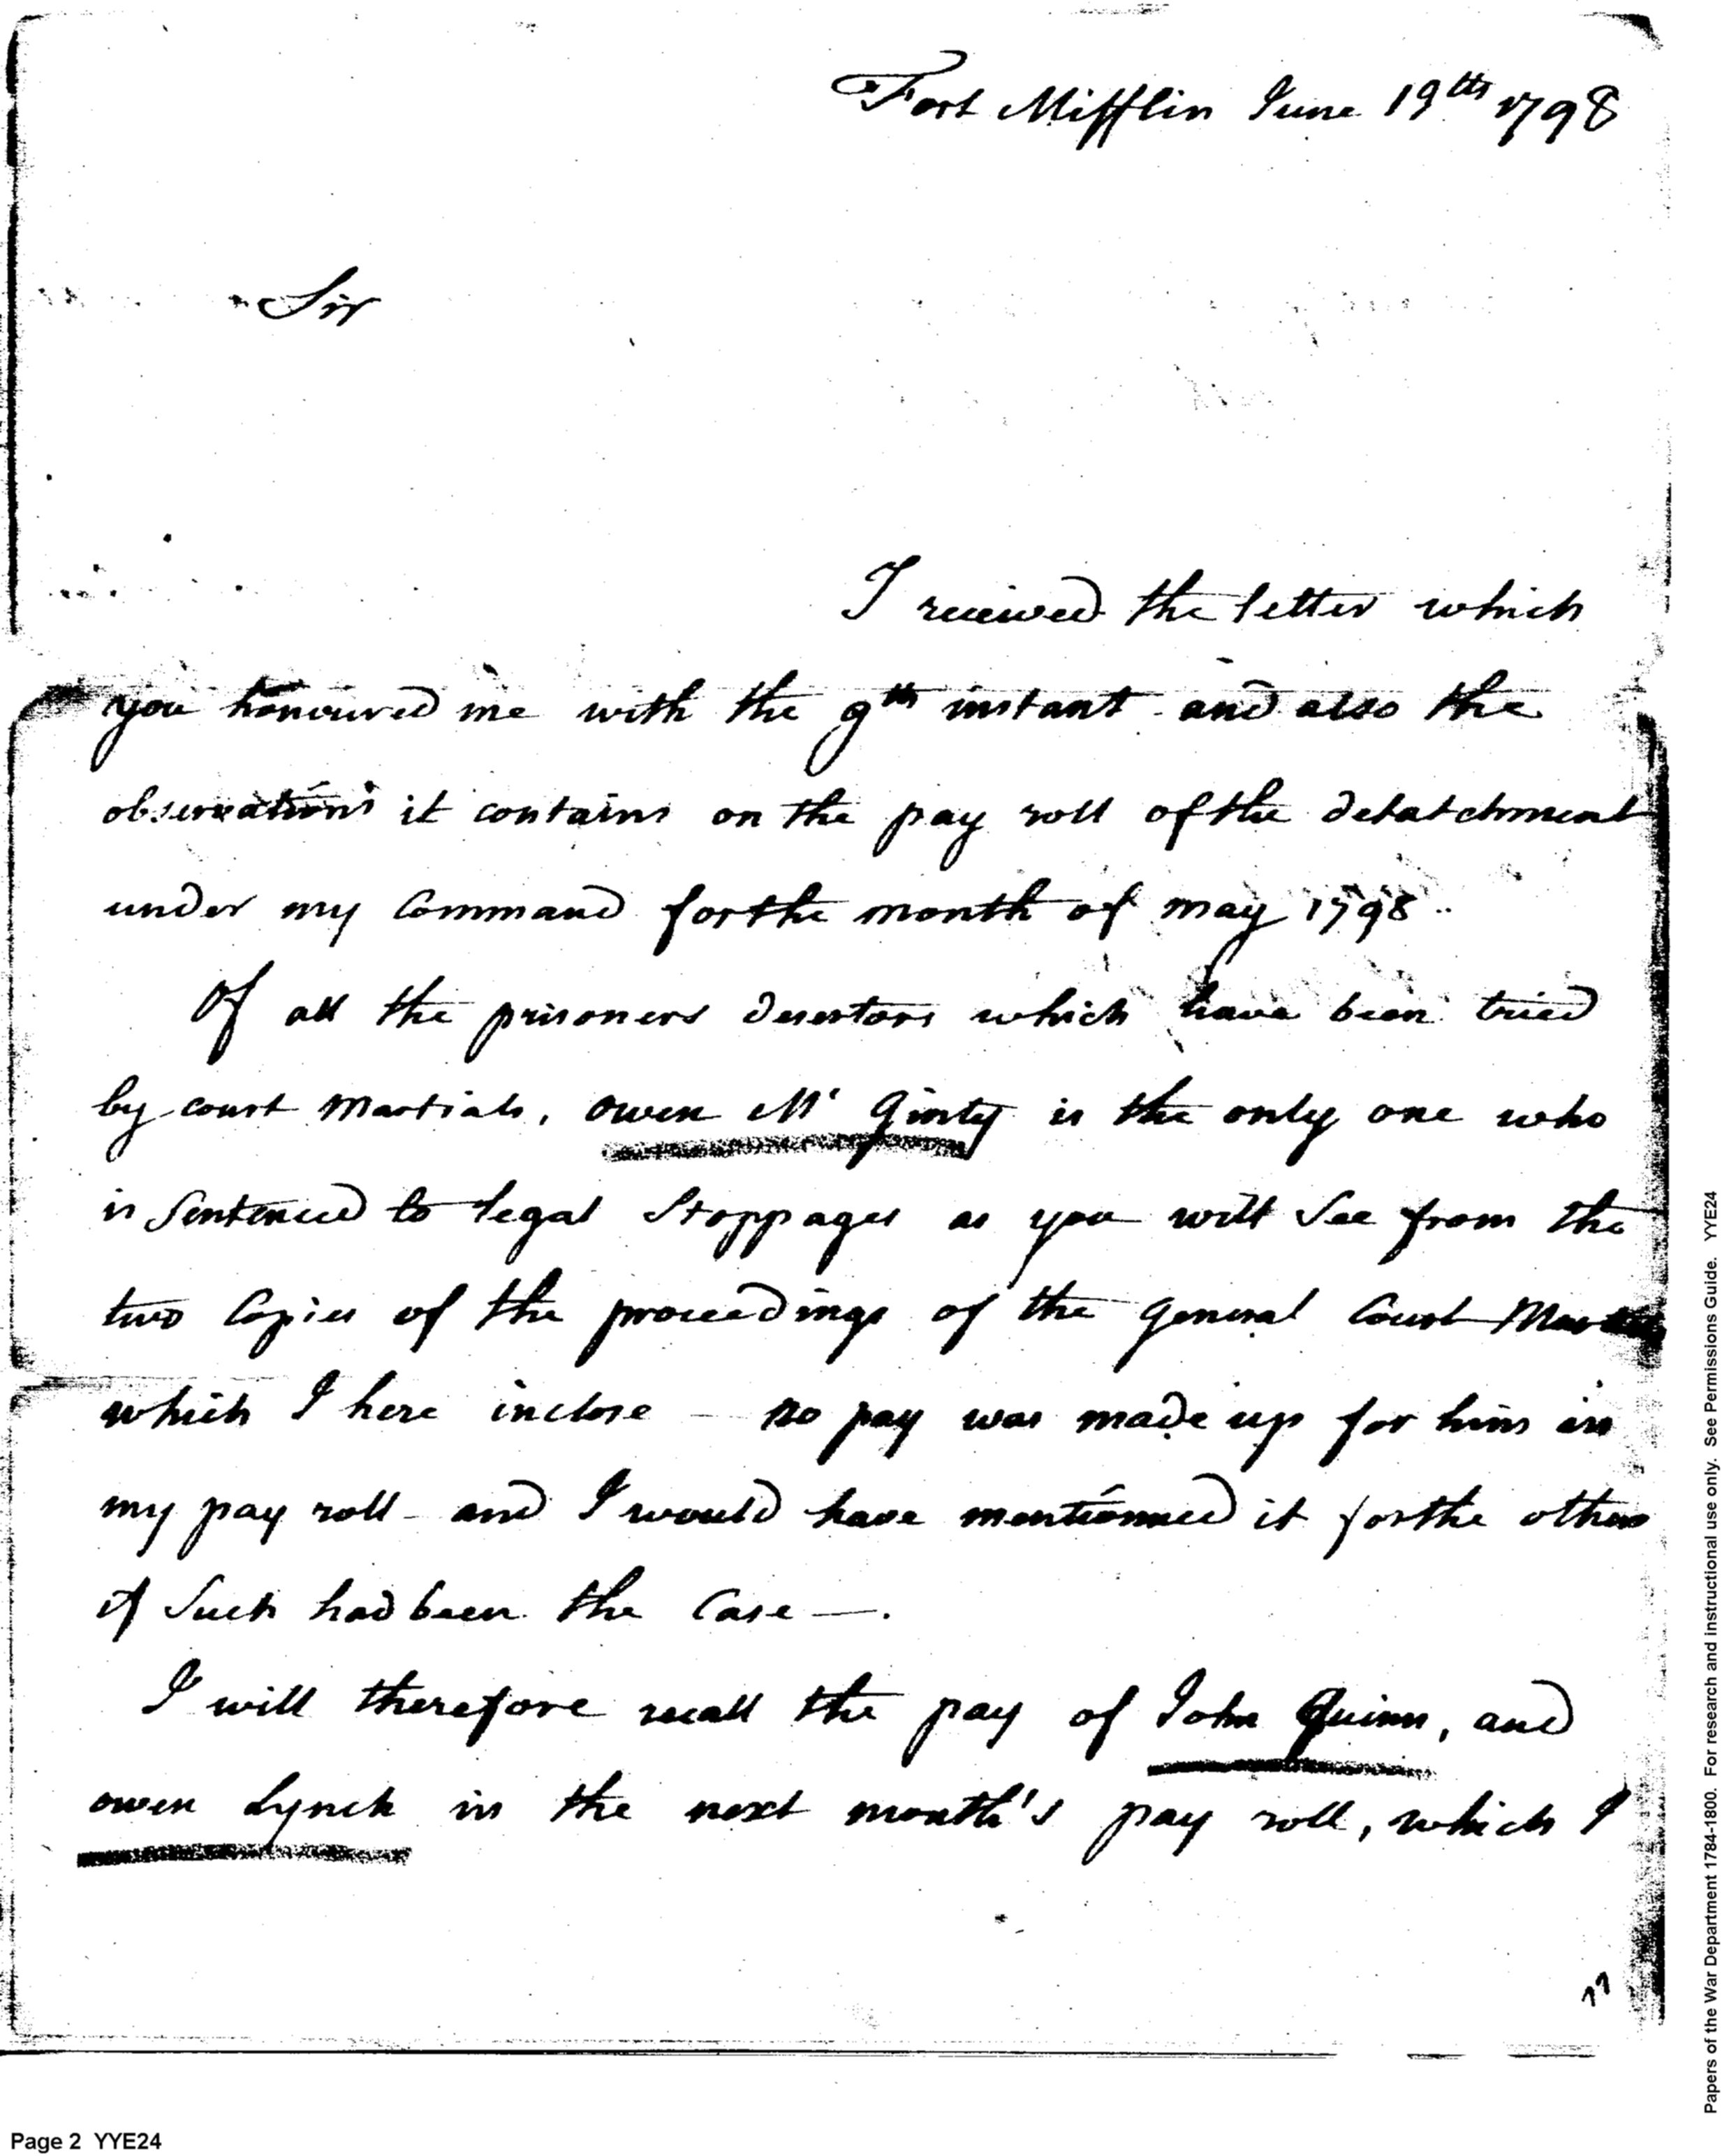 Fort Mifflin June 19th 1798
Sir
I received the letter which
you honoured me with the 9th instant and also the
observations it contains on the pay roll of the detatchment
under my Command for the month of may 1798
Of all the prisoners desertors which have been tried
by court Martials, owen Mc Ginty is the only one who
is Sentenced to legal Stoppages as you will See from the
two Copies of the proceedings of the general Court
which I here inclose – no pay was made up for him in
my pay roll – and I would have mentionned it for the others
if Such had been the Case —.
I will therefore recall the pay of John Quinn, and
owen Lynch in the next month's pay roll, which I
77
Page 2 YYE24
Papers of the War Department 1784-1800. For research and instructional use only. See Permissions Guide. YYE24